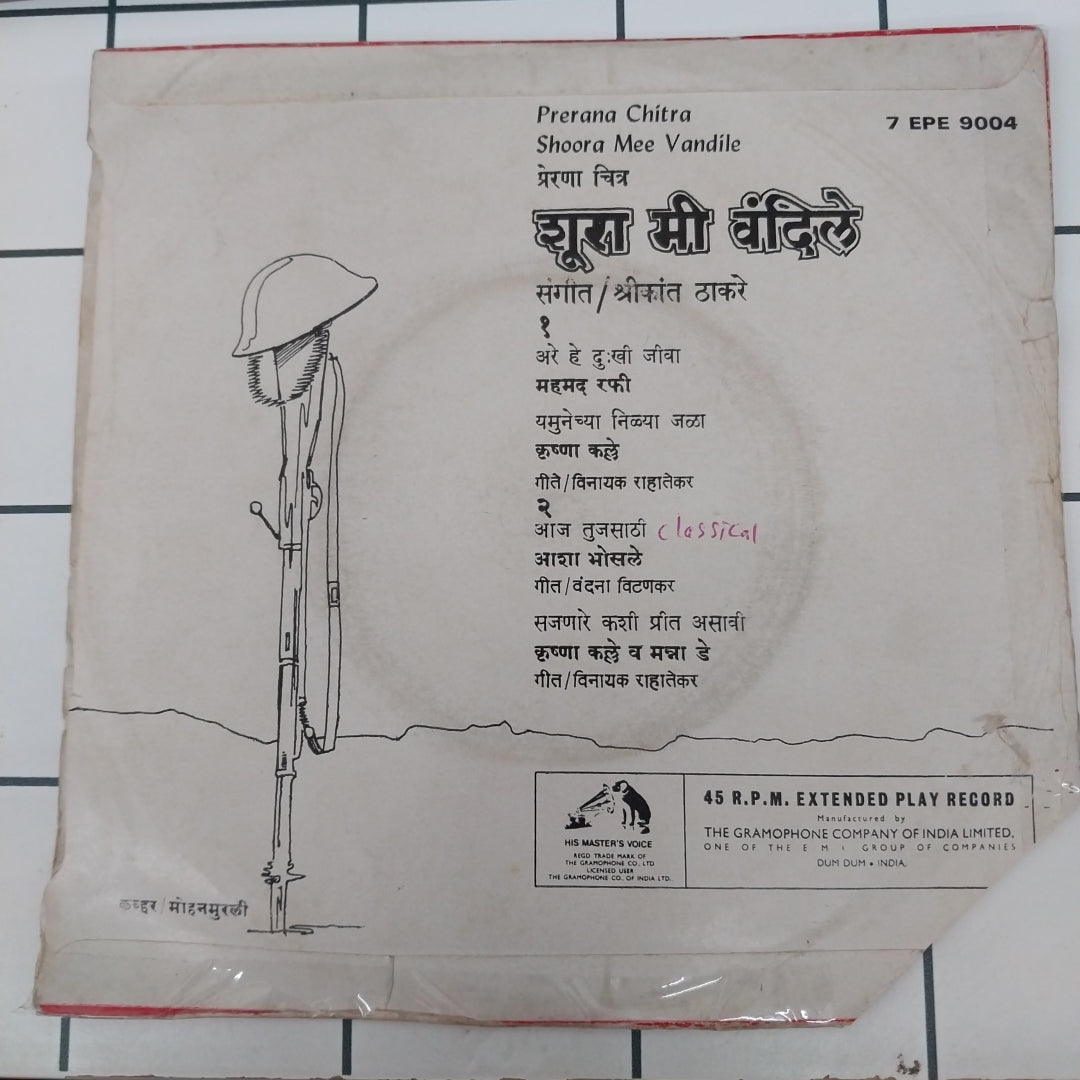 Prerana Chitra
Shoora Mee Vandile
7 EPE 9004
प्रेरणा चित्र
शूरा मी वंदिले
संगीत/श्रीकांत ठाकरे
१
अरे हे दुःखी जीवा
महमद रफी
यमुनेच्या निळ्या जळा
कृष्णा कल्ले
गीते/विनायक राहातेकर
२
आज तुजसाठी classical
आशा भोसले
गीत/वंदना विटणकर
सजणारे कशी प्रीत असावी
कृष्णा कल्ले व मन्ना डे
गीत/विनायक राहातेकर
HIS MASTER'S VOICE
REGD TRADE MARK OF
THE GRAMOPHONE CO. LTD
LICENSED USER
THE GRAMOPHONE CO. OF INDIA LTD.
45 R.P.M. EXTENDED PLAY RECORD
Manufactured by
THE GRAMOPHONE COMPANY OF INDIA LIMITED.
ONE OF THE E M I GROUP OF COMPANIES
DUM DUM • INDIA.
कव्हर/मोहनमुरली